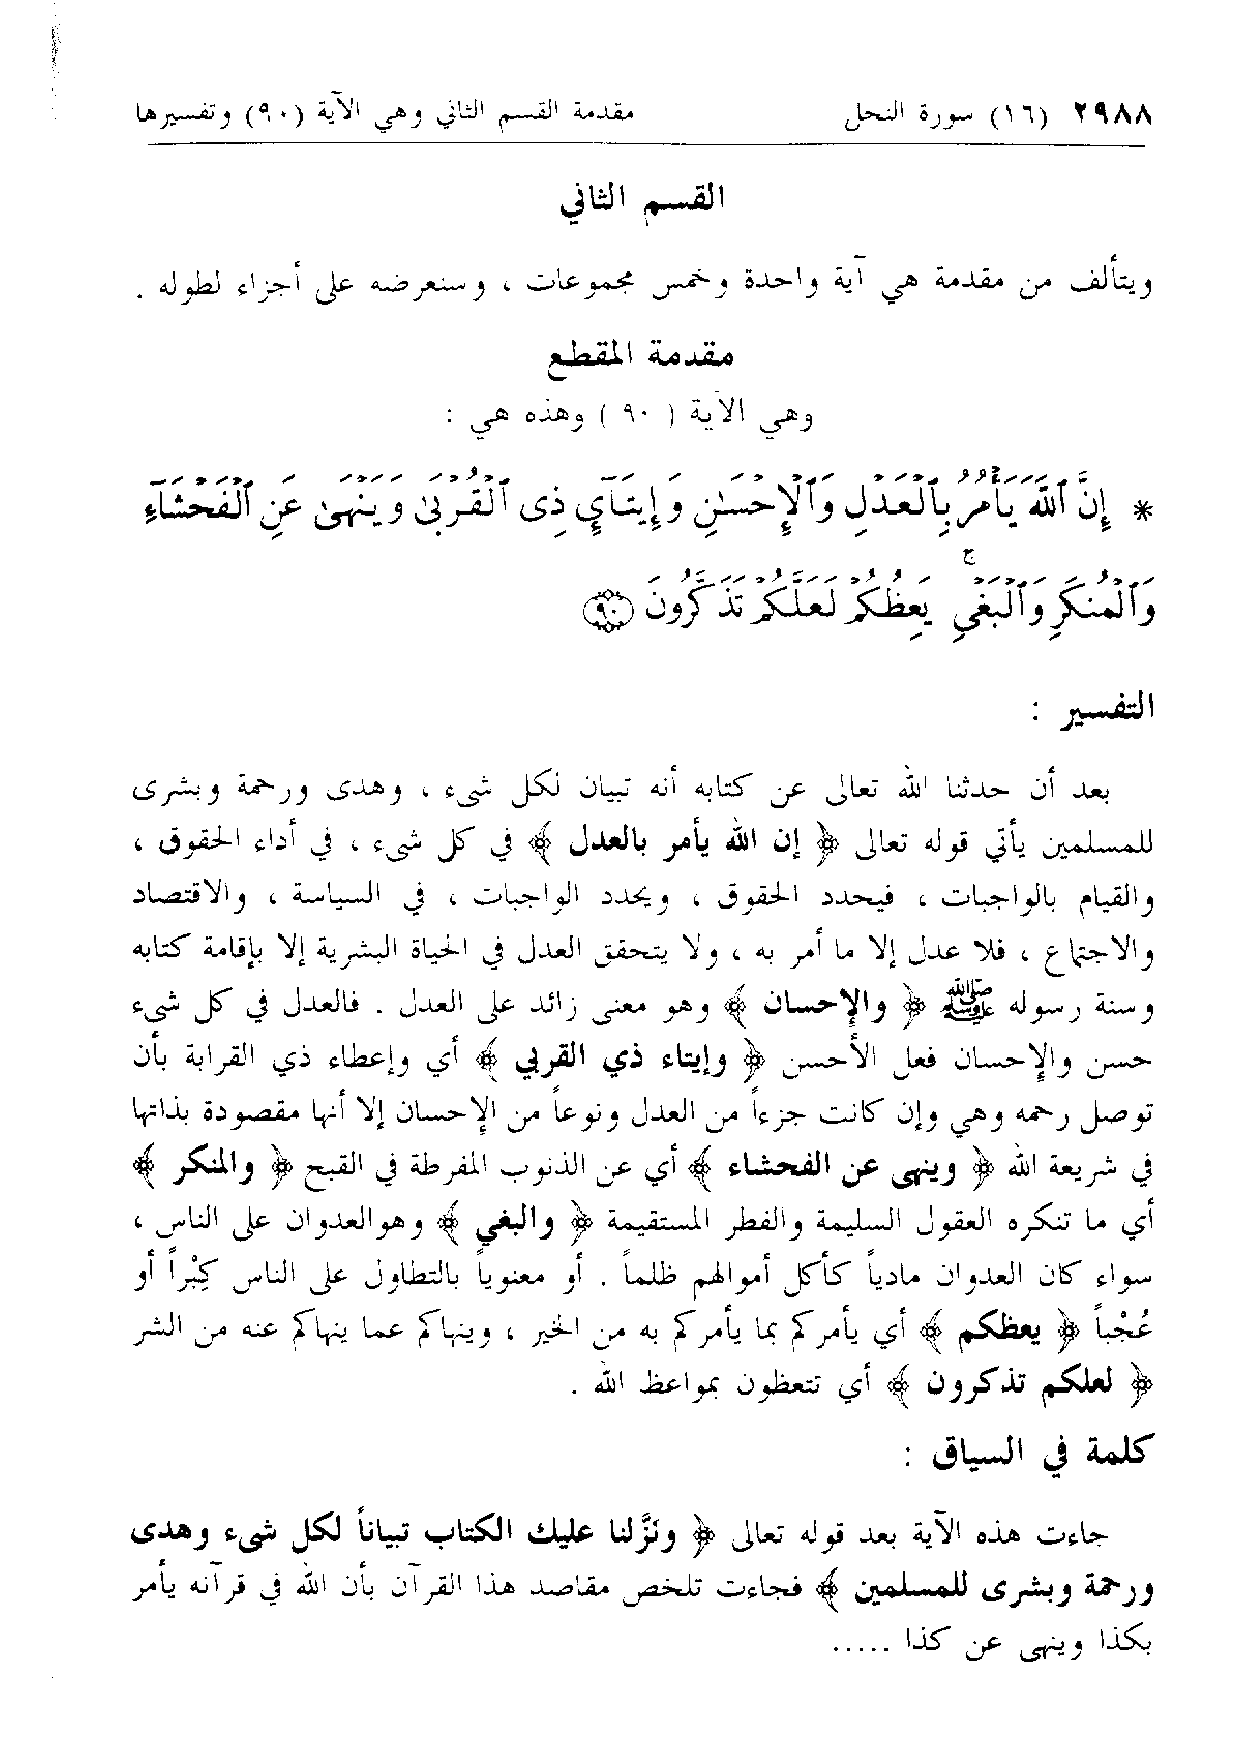 ٢٩٨٨ (١٦) سورة النحل مقدمة القسم الثاني وهي الآية (٩٠) وتفسيرها
القسم الثاني
ويتألف من مقدمة هي آية واحدة وخمس مجموعات ، وسنعرضه على أجزاء لطوله .
مقدمة المقطع
وهي الآية ( ٩٠ ) وهذه هي :
* إِنَّ ٱللَّهَ يَأْمُرُ بِٱلْعَدْلِ وَٱلْإِحْسَٰنِ وَإِيتَآيِ ذِى ٱلْقُرْبَىٰ وَيَنْهَىٰ عَنِ ٱلْفَحْشَآءِ
وَٱلْمُنكَرِ وَٱلْبَغْيِ ۚ يَعِظُكُمْ لَعَلَّكُمْ تَذَكَّرُونَ ﴿٩٠﴾
التفسير :
بعد أن حدثنا الله تعالى عن كتابه أنه تبيان لكل شيء ، وهدى ورحمة وبشرى
للمسلمين يأتي قوله تعالى ﴿ إن الله يأمر بالعدل ﴾ في كل شيء ، في أداء الحقوق ،
والقيام بالواجبات ، فيحدد الحقوق ، ويحدد الواجبات ، في السياسة ، والاقتصاد
والاجتماع ، فلا عدل إلا ما أمر به ، ولا يتحقق العدل في الحياة البشرية إلا بإقامة كتابه
وسنة رسوله ﷺ ﴿ والإحسان ﴾ وهو معنى زائد على العدل . فالعدل في كل شيء
حسن والإحسان فعل الأحسن ﴿ وإيتاء ذي القربى ﴾ أي وإعطاء ذي القرابة بأن
توصل رحمه وهي وإن كانت جزءاً من العدل ونوعاً من الإحسان إلا أنها مقصودة بذاتها
في شريعة الله ﴿ وينهى عن الفحشاء ﴾ أي عن الذنوب المفرطة في القبح ﴿ والمنكر ﴾
أي ما تنكره العقول السليمة والفطر المستقيمة ﴿ والبغي ﴾ وهوالعدوان على الناس ،
سواء كان العدوان مادياً كأكل أموالهم ظلماً . أو معنوياً بالتطاول على الناس كِبْراً أو
عُجْباً ﴿ يعظكم ﴾ أي يأمركم بما يأمركم به من الخير ، وينهاكم عما ينهاكم عنه من الشر
﴿ لعلكم تذكرون ﴾ أي تتعظون بمواعظ الله .
كلمة في السياق :
جاءت هذه الآية بعد قوله تعالى ﴿ ونزَّلنا عليك الكتاب تبياناً لكل شيء وهدى
ورحمة وبشرى للمسلمين ﴾ فجاءت تلخص مقاصد هذا القرآن بأن الله في قرآنه يأمر
بكذا وينهى عن كذا .....